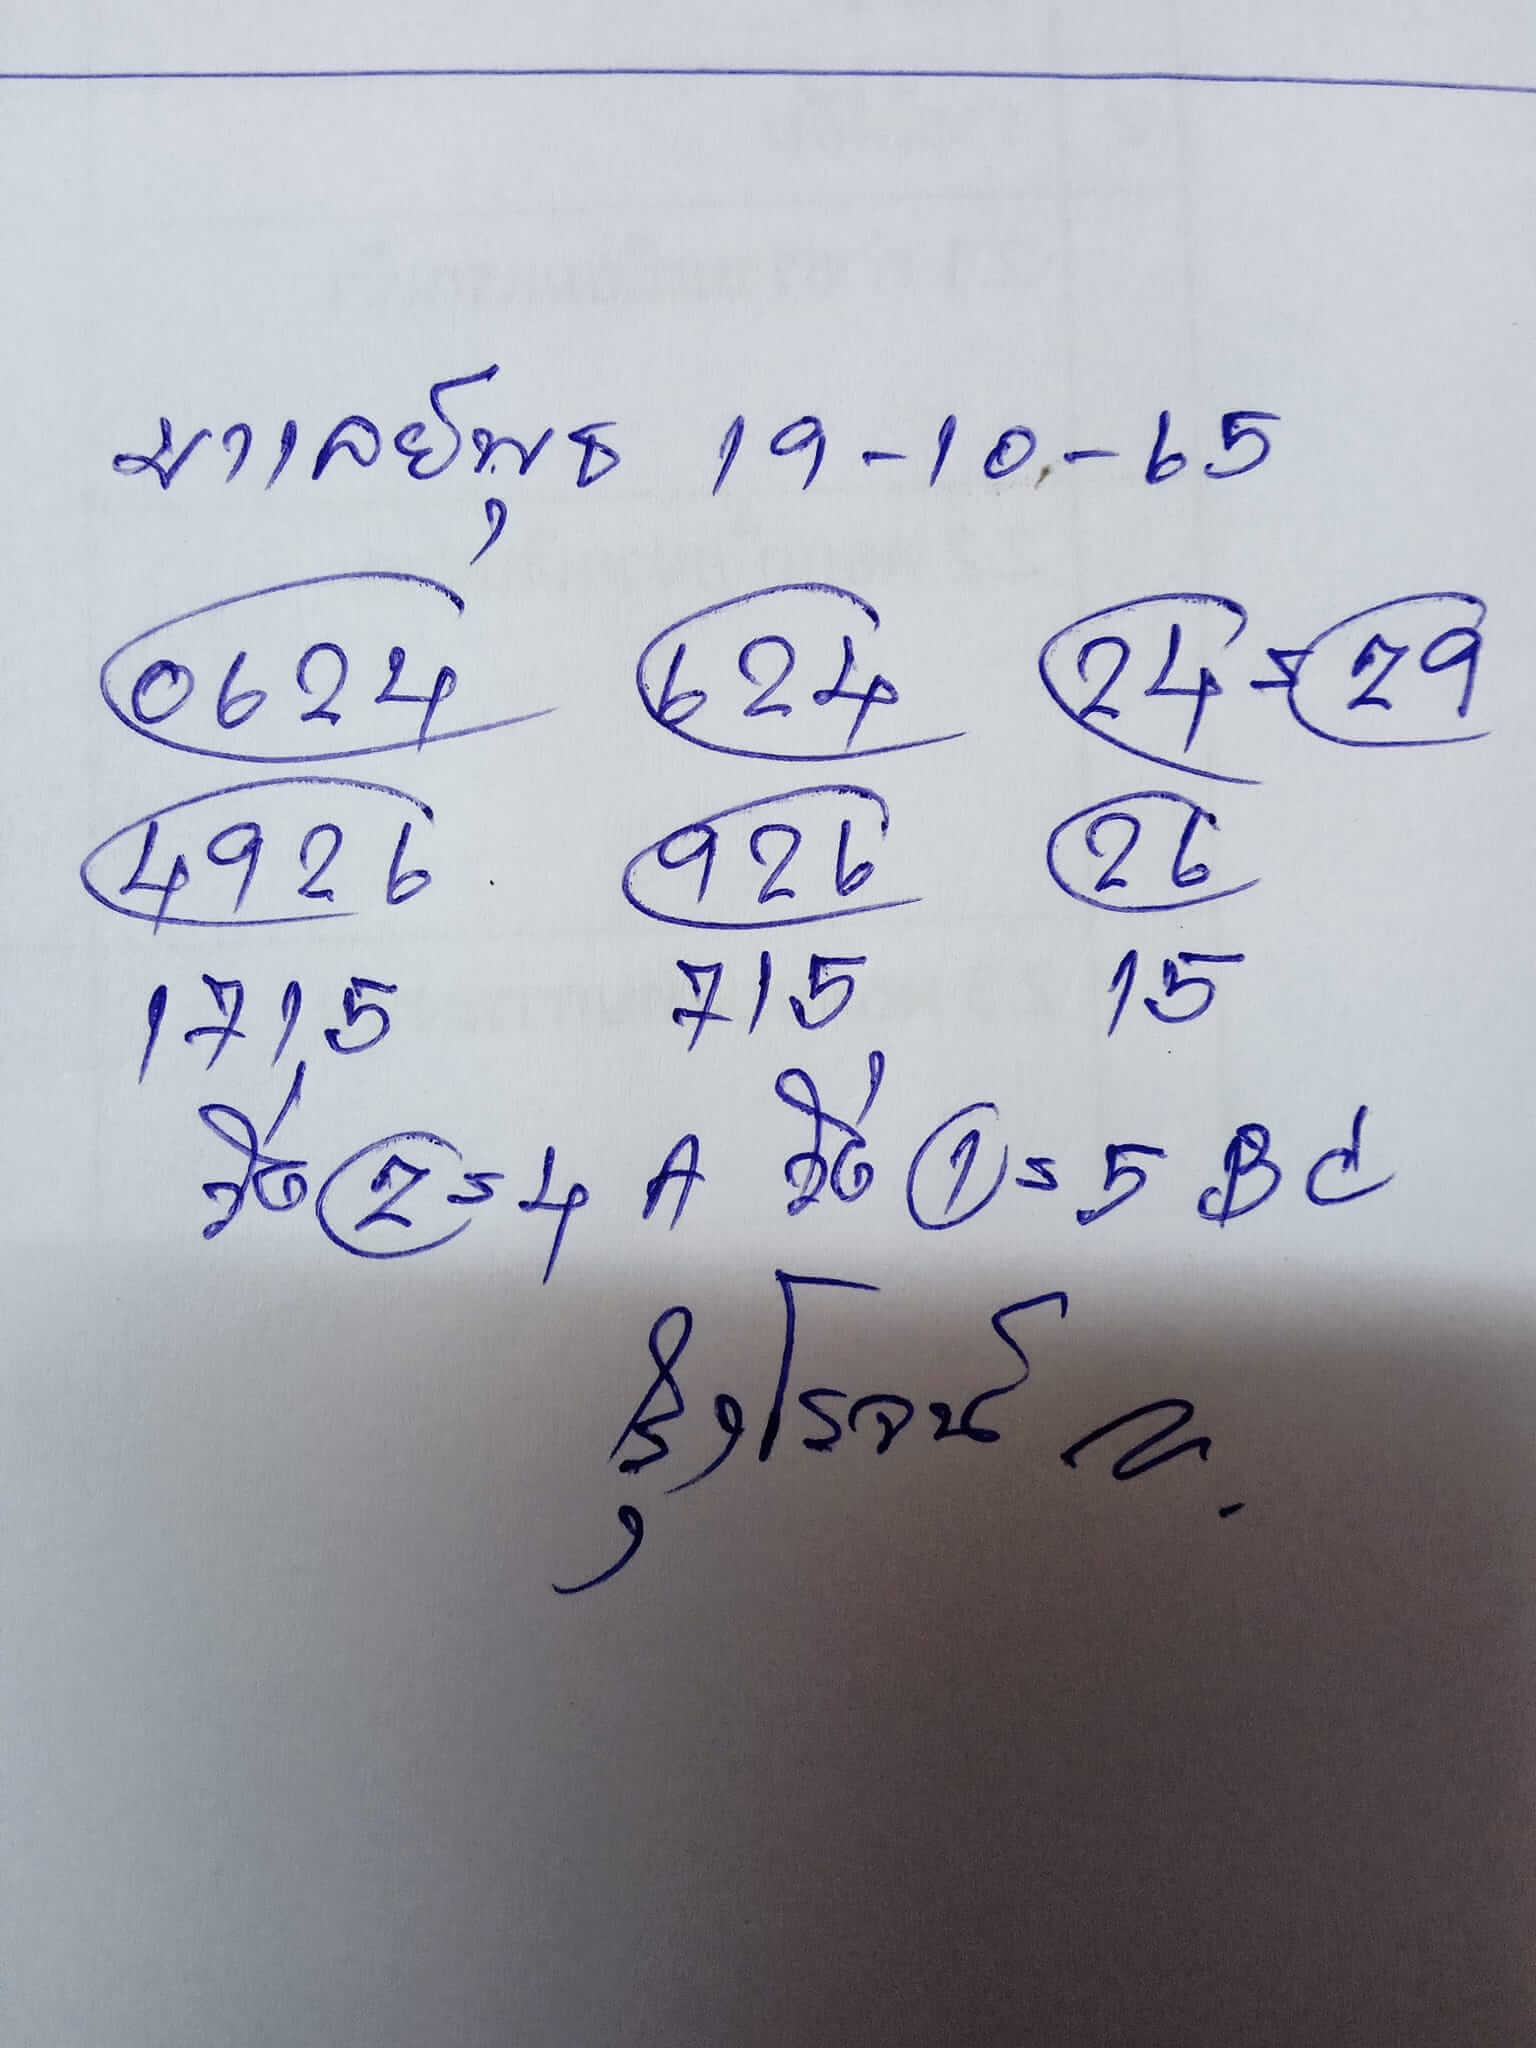 มาเลย์พุธ 19-10-65
0624 624 24=29
4926 926 26
1715 715 15
วิ่ง 2=4 A วิ่ง 1=5 BC
รุ่งโรจน์